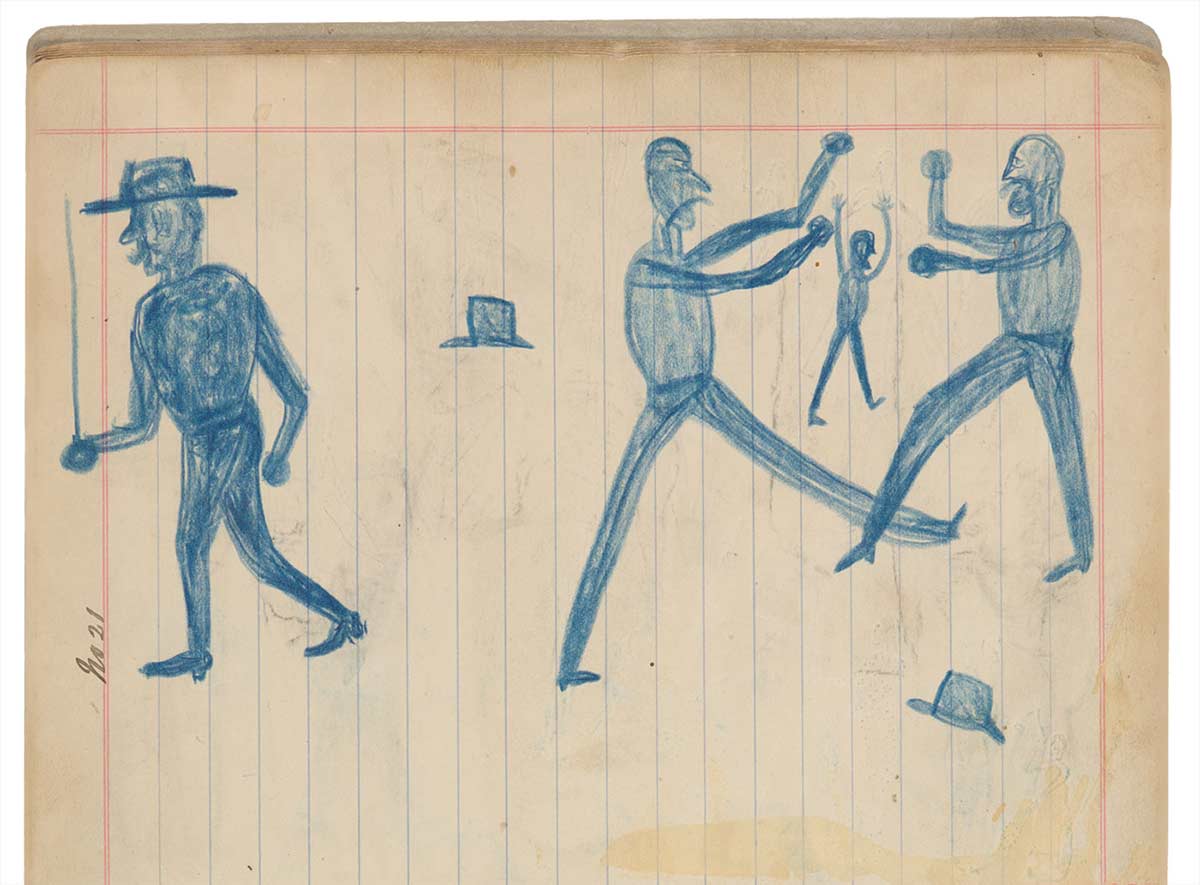 No 21